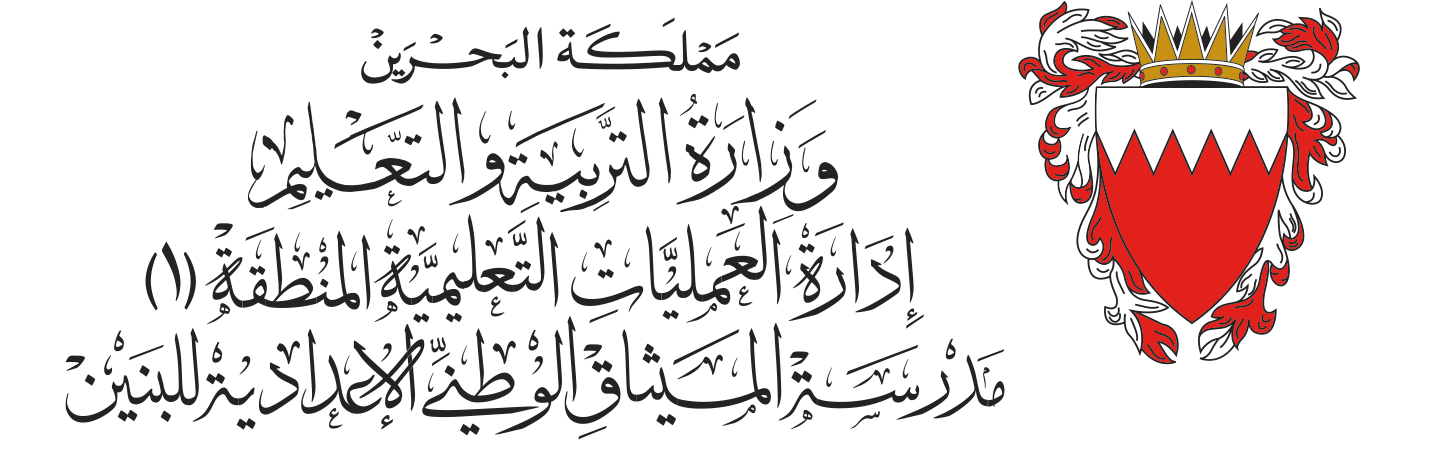 مملكة البحرين
وزارة التربية والتعليم
إدارة العمليات التعليمية المنطقة (١)
مدرسة الميثاق الوطني الإعدادية للبنين